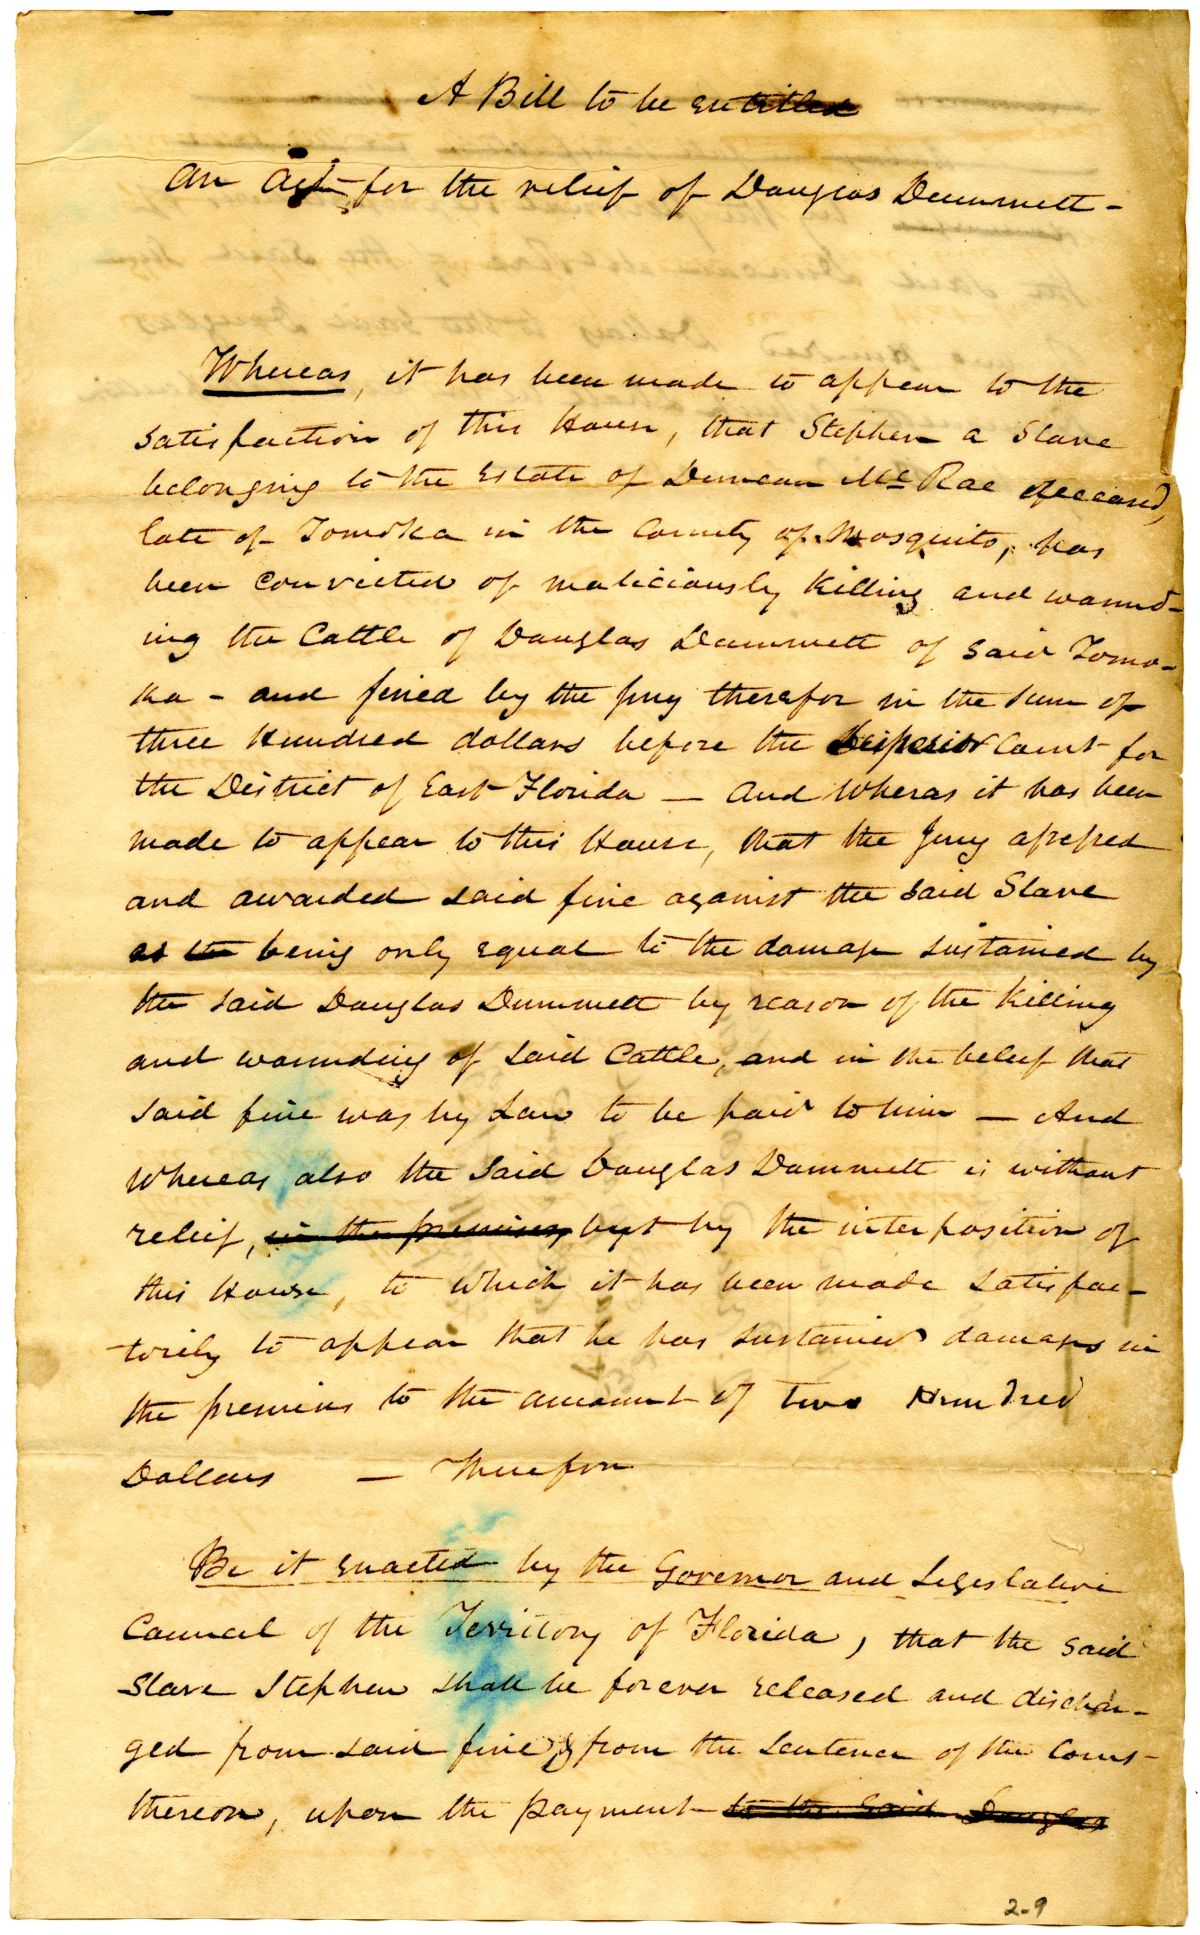 A Bill to be entitled
An Act for the relief of Douglas Dummett -
Whereas, it has been made to appear to the
satisfaction of this House, that Stephen a Slave
belonging to the Estate of Duncan McRae deceased,
late of Tomoka in the County of Mosquito, has
been convicted of maliciously Killing and wound-
ing the Cattle of Douglas Dummett of said Tomo-
ka - and fined by the jury therefor in the sum of
three Hundred dollars before the Superior Court for
the District of East Florida — And Wheras it has been
made to appear to this House, that the Jury assessed
and awarded said fine against the said Slave
as the being only equal to the damage sustained by
the said Douglas Dummett by reason of the Killing
and wounding of said Cattle, and in the belief that
said fine was by Law to be paid to him — And
Whereas also the said Douglas Dummett is without
relief, in the premises but by the interposition of
this House, to which it has been made satisfac-
torily to appear that he has sustained damages in
the premises to the amount of Two Hundred
Dollars — Therefore
Be it enacted by the Governor and Legislative
Council of the Territory of Florida, that the said
Slave Stephen shall be forever released and dischar-
ged from said fine, & from the sentence of the Court
thereon, upon the payment to the said Douglas
2-9